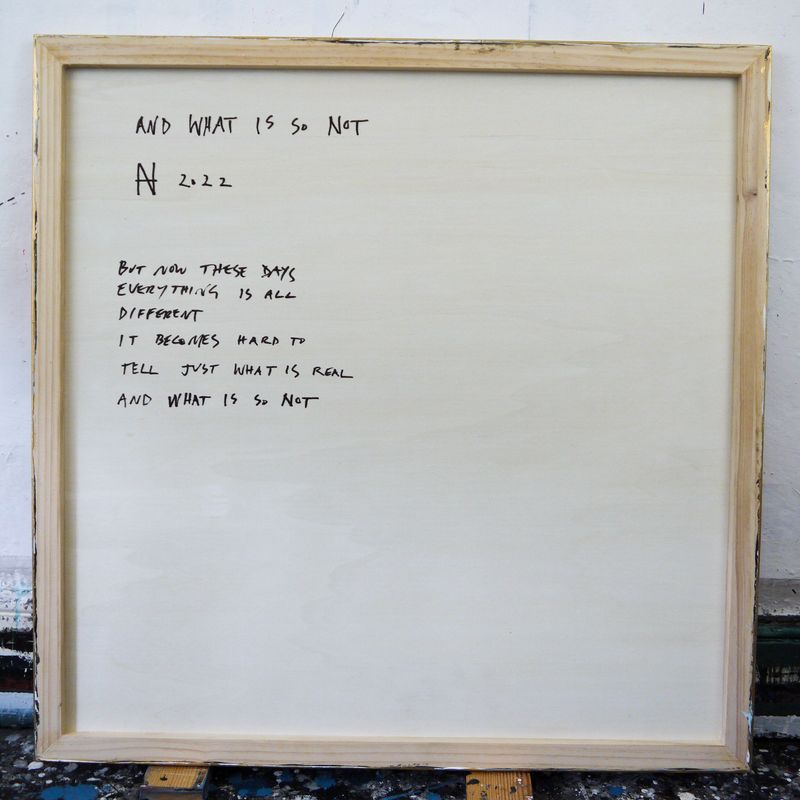 AND WHAT IS SO NOT
N 2022
BUT NOW THESE DAYS
EVERYTHING IS ALL
DIFFERENT
IT BECOMES HARD TO
TELL JUST WHAT IS REAL
AND WHAT IS SO NOT